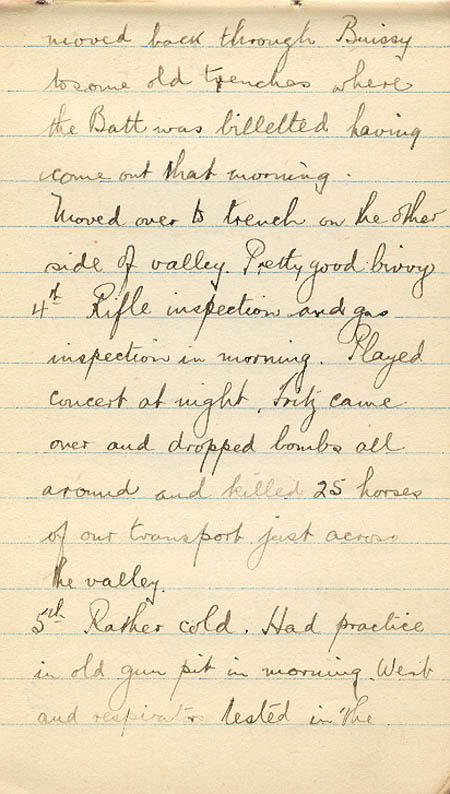 moved back through Buissy
to some old trenches where
the Batt was billetted having
come out that morning.
Moved over to trench on the other
side of valley. Pretty good bivvy
4th Rifle inspection and gas
inspection in morning. Played
concert at night, Fritz came
over and dropped bombs all
around and killed 25 horses
of our transport just across
the valley.
5th Rather cold. Had practice
in old gun pit in morning. Went
and respirators tested in the